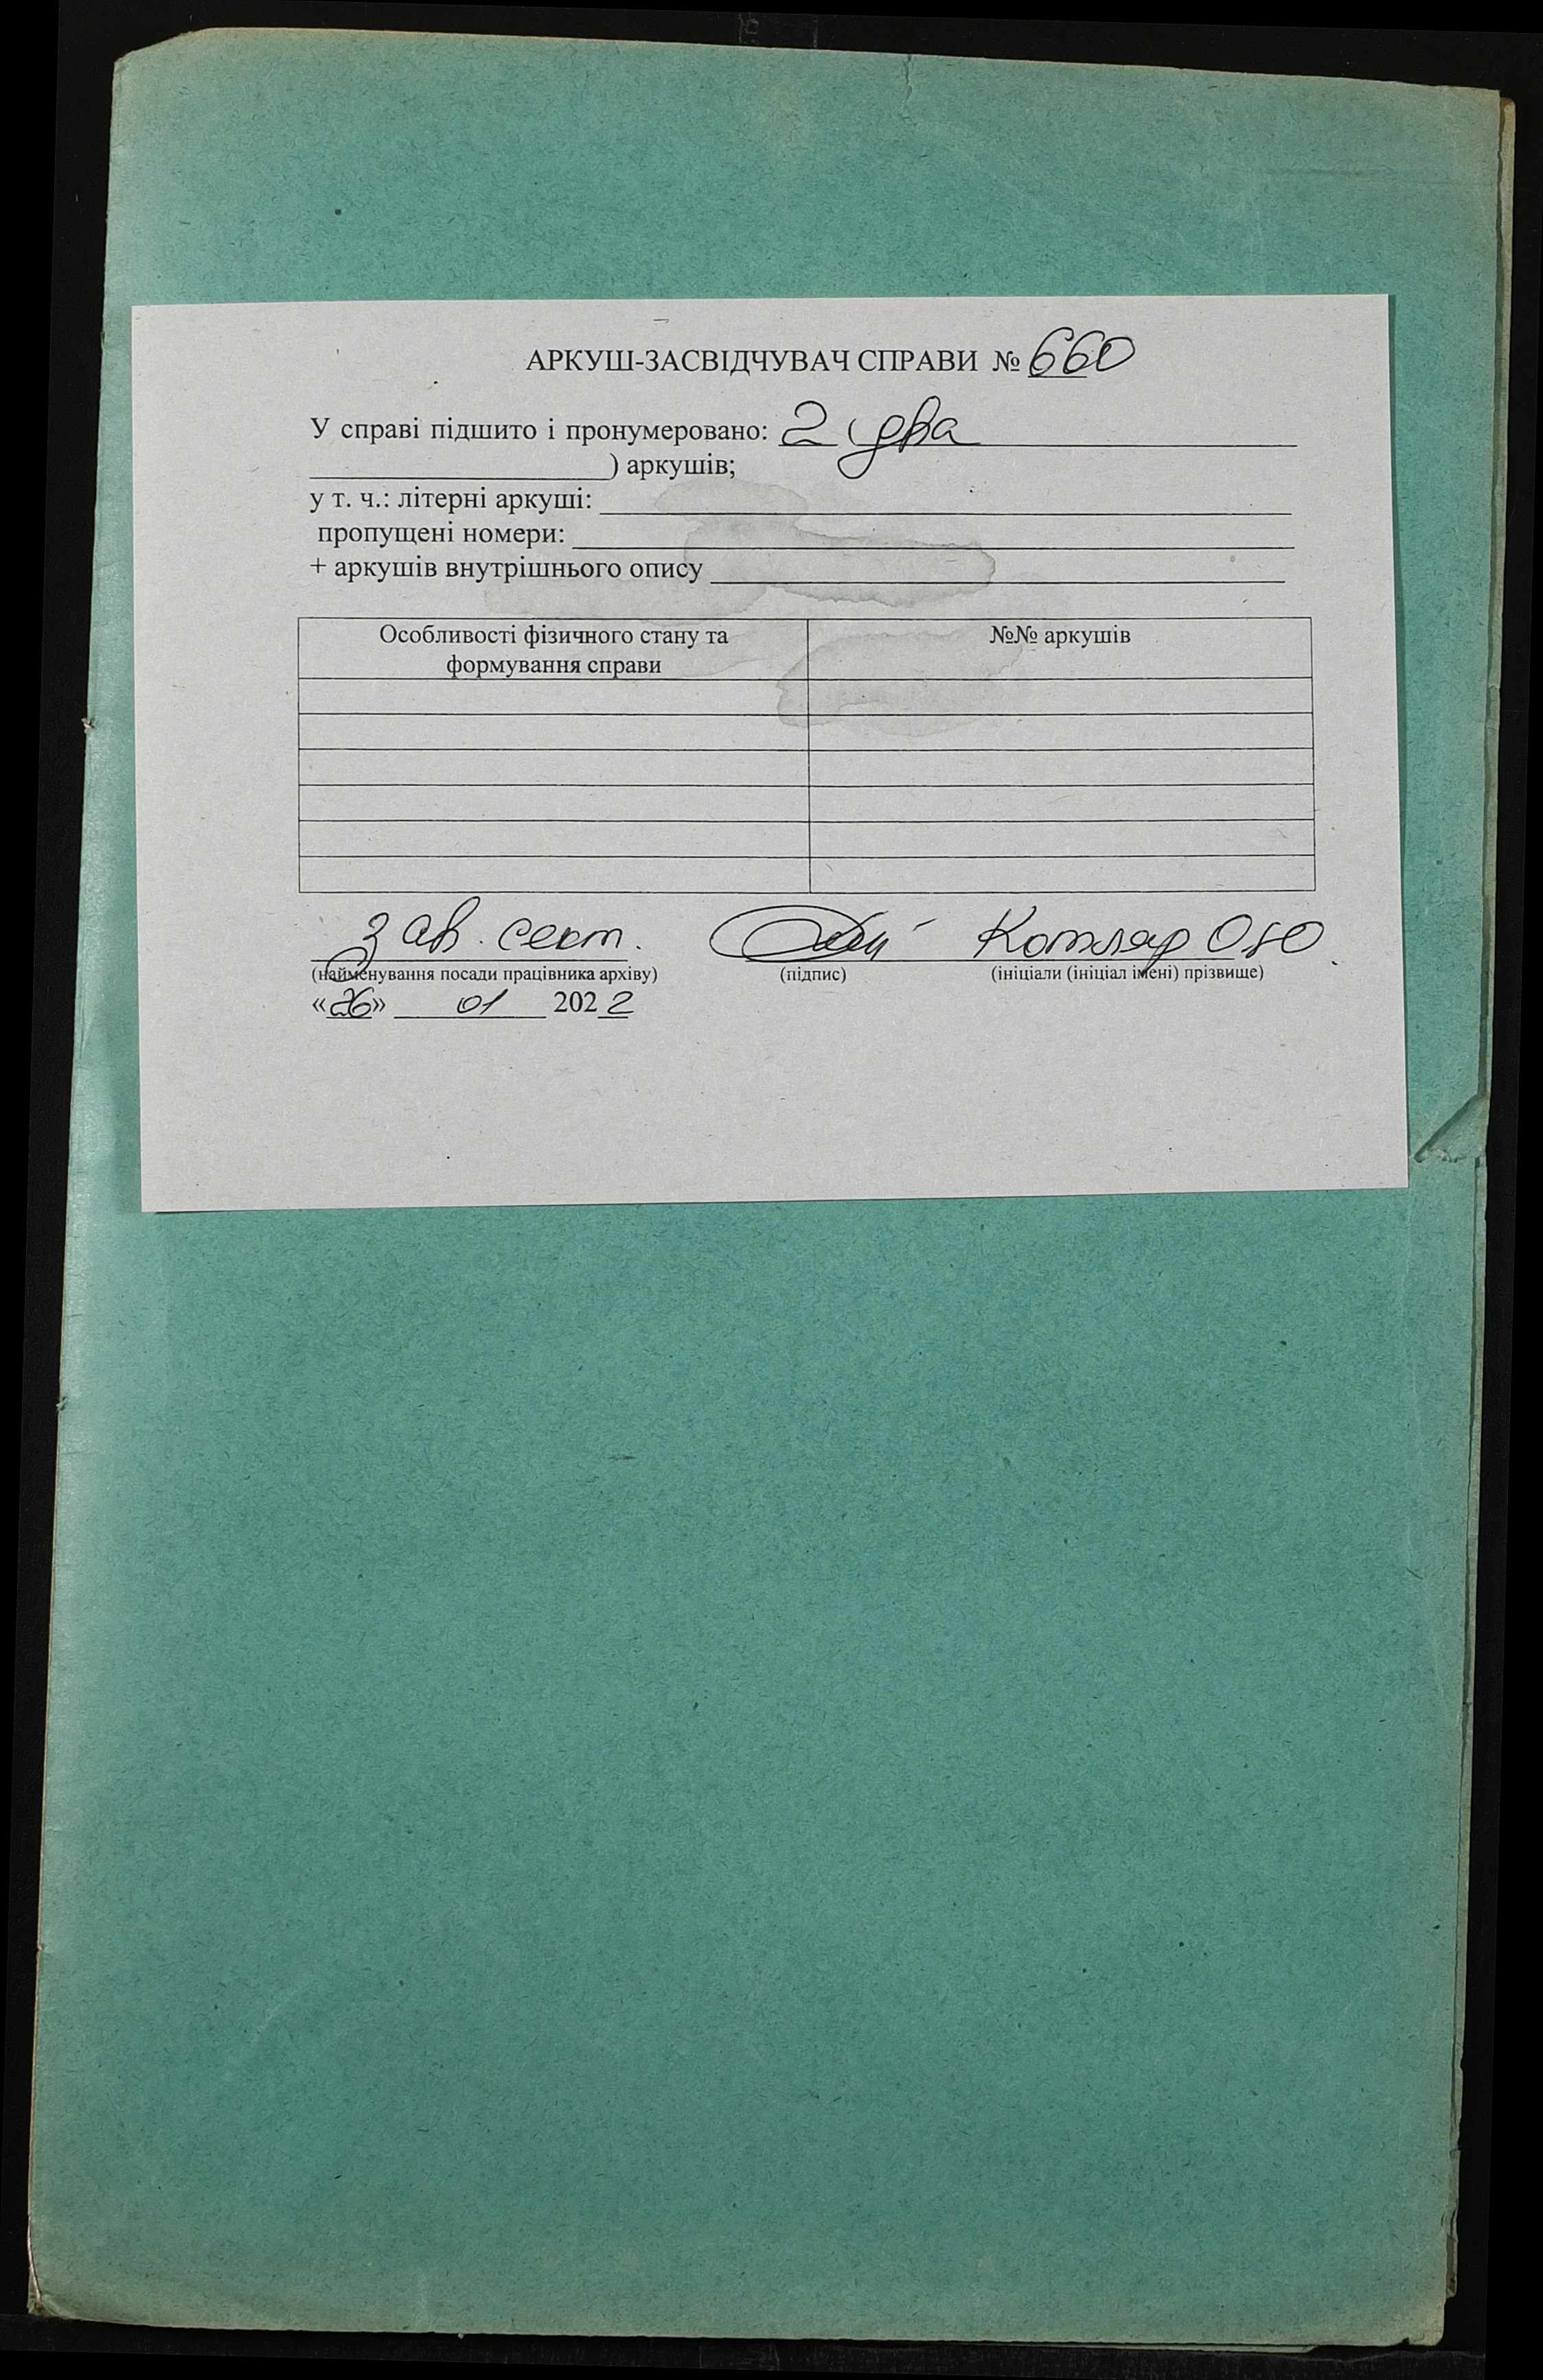 АРКУШ-ЗАСВІДЧУВАЧ СПРАВИ № 660
У справі підшито і пронумеровано: 2 (два
) аркушів;
у т. ч.: літерні аркуші:
пропущені номери:
+ аркушів внутрішнього опису
Особливості фізичного стану та формування справи
№№ аркушів
Зав. сект. Котляр О.Ю.
(найменування посади працівника архіву) (підпис) (ініціали (ініціал імені) прізвище)
«26» 01 2022